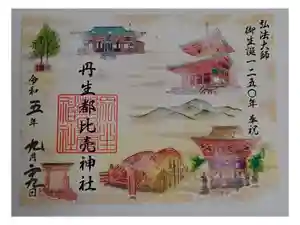 弘法大師
御生誕一二五〇年 奉祝
丹生都比売神社
令和五年
九月二十九日